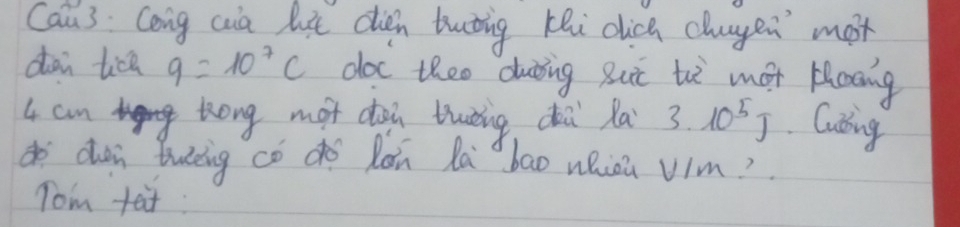 Câu 3. Công của lực điện trường khi dịch chuyển một
điện tích q = 10⁷ C dọc theo đường sức từ một khoảng
4 cm trong một điện trường đều là 3.10⁵ J. Cường
độ điện trường có độ lớn là bao nhiêu V/m?.
Tóm tắt: